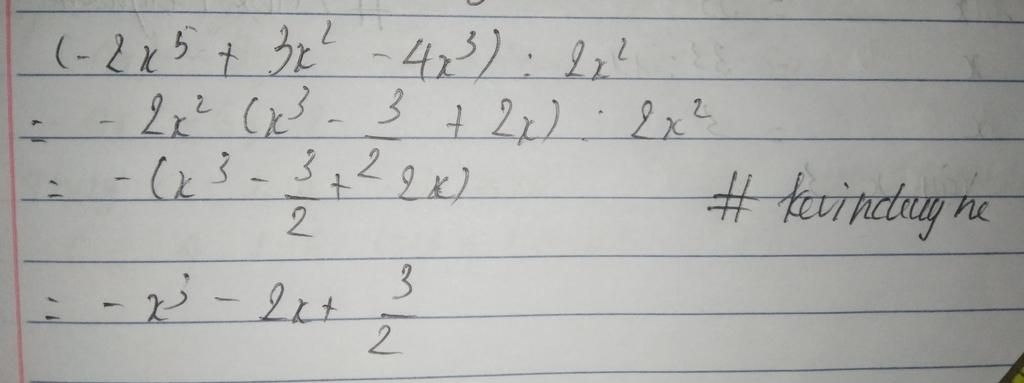 (-2x⁵ + 3x² - 4x³) : 2x²
= - 2x² (x³ - 3/2 + 2x) : 2x²
= - (x³ - 3/2 + 2x)
# kevindayne
= - x³ - 2x + 3/2